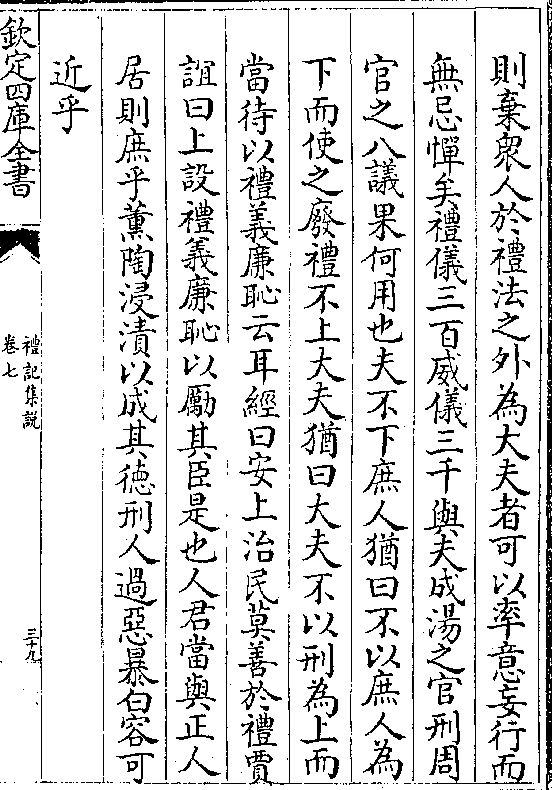 則棄衆人於禮法之外為大夫者可以率意妄行而
無忌憚矣禮儀三百威儀三千與夫成湯之官刑周
官之八議果何用也夫不下庶人猶曰不以庶人為
下而使之廢禮不上大夫猶曰大夫不以刑為上而
當待以禮義廉恥云耳經曰安上治民莫善於禮賈
誼曰上設禮義廉恥以厲其臣是也人君當與正人
居則庶乎薰陶浸漬以成其德刑人過惡暴白容可
近乎
欽定四庫全書
禮記集說
卷七
三十九